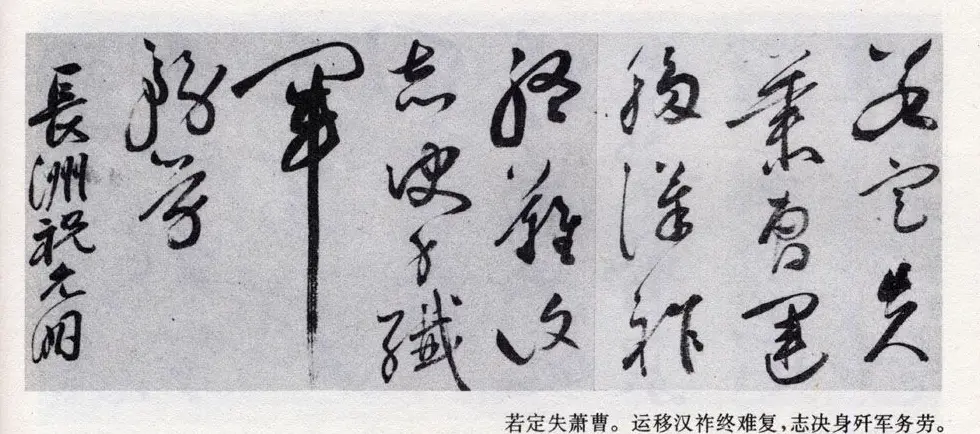 若定失
蕭曹運
移漢祚
終難復
志決身殲
軍
務勞
長洲祝允明
若定失萧曹。运移汉祚终难复,志决身歼军务劳。